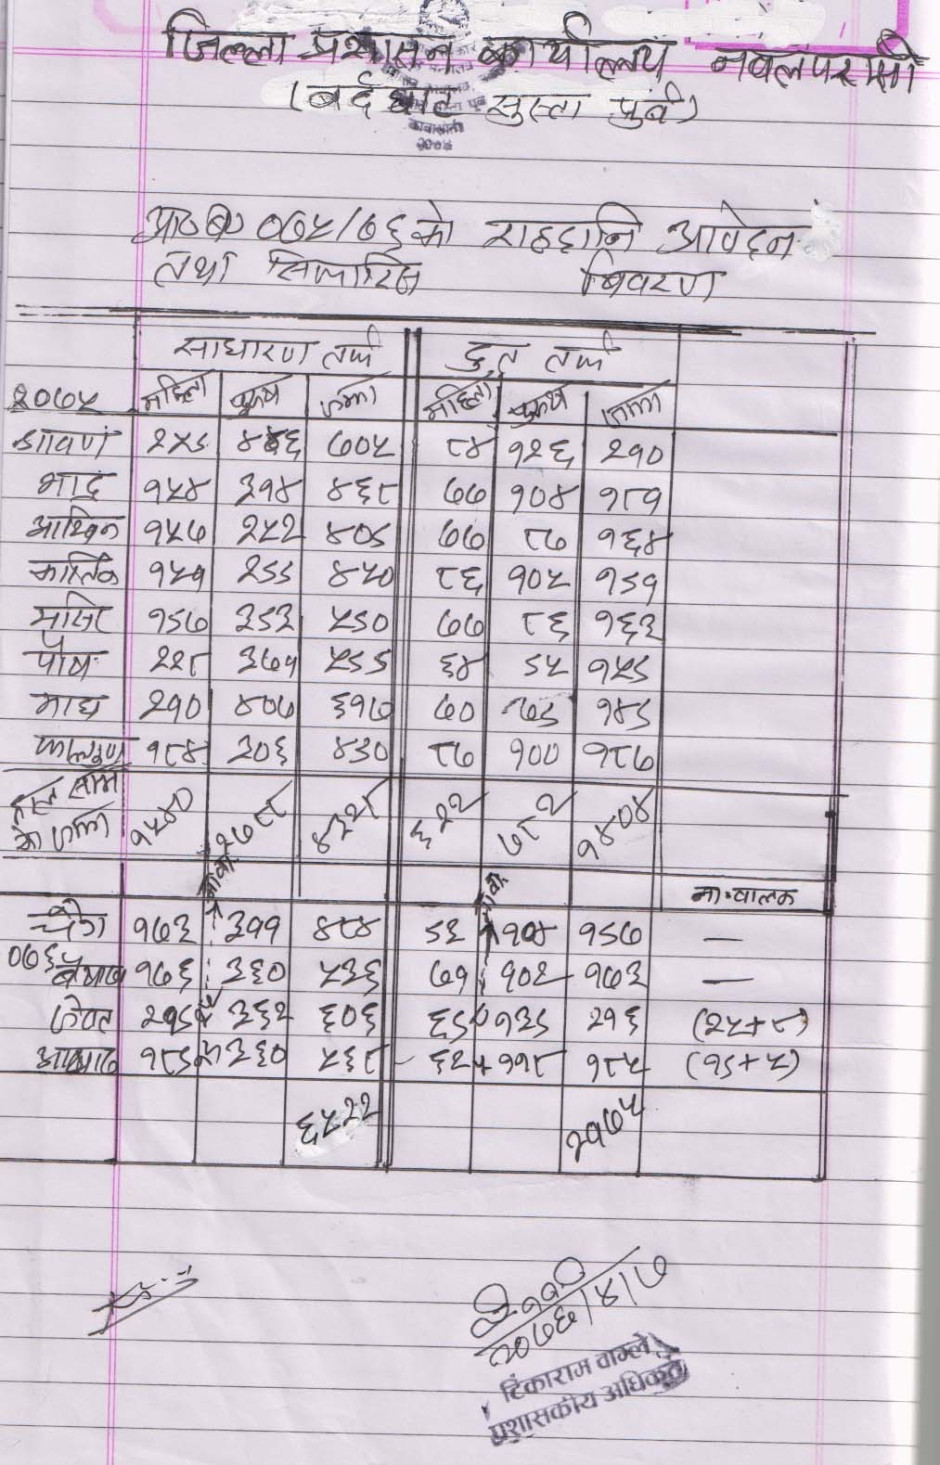 जिल्ला प्रशासन कार्यालय नवलपरासी
(बर्दघाट सुस्ता पुर्व)
आ०ब० ०७५/७६को राहदानि आवेदन
तथा सिफारिस विवरण
साधारण तर्फ द्रुत तर्फ
२०७५ महिला पुरुष जम्मा महिला पुरुष जम्मा
श्रावण २५९ ४४६ ७०५ ८४ १२६ २१०
भाद्र १५४ ३१४ ४६८ ७७ १०४ १८१
आश्विन १५७ २५२ ४०९ ७७ ८७ १६४
कार्तिक १५१ २९९ ४५० ८६ १०५ १९१
मंसिर १९७ ३९३ ५९० ७७ ८६ १६३
पौष २२८ ३७१ ५९९ ६४ ९५ १५९
माघ २१० ४०७ ६१७ ७० ७९ १४९
फाल्गुण १८४ ३०६ ४९० ८७ १०० १८७
के जम्मा १५४० २७८८ ४३२८ ६२२ ७८२ १४०४
ना.बालक
चैत्र १७३ ३११ ४८४ ९३ १०४ १९७ —
०७६ बैशाख १७६ ३६० ५३६ ७१ १०२ १७३ —
जेष्ठ ३६२ ६०६ २१६ (२५+८)
आषाढ ३३० ५३८ ११८ १८५ (१९+५)
६५२२ २१७५
२०७६/४/७
टिंकाराम वाग्ले
प्रशासकीय अधिकृत